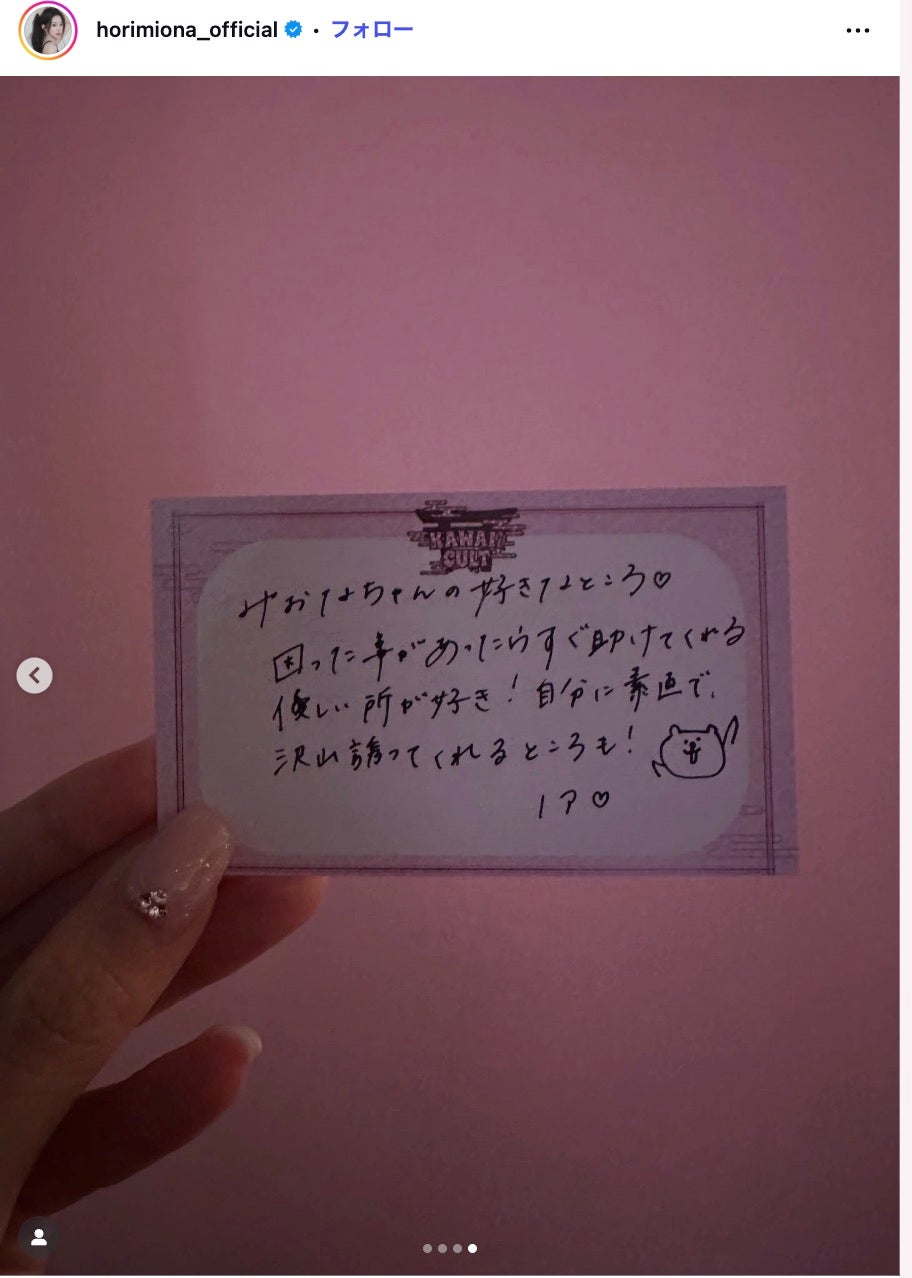 horimiona_official • フォロー
KAWAII
CULT
みおなちゃんの好きなところ♡
困った事があったらすぐ助けてくれる
優しい所が好き！自分に素直で、
沢山誘ってくれるところも！
ノア♡